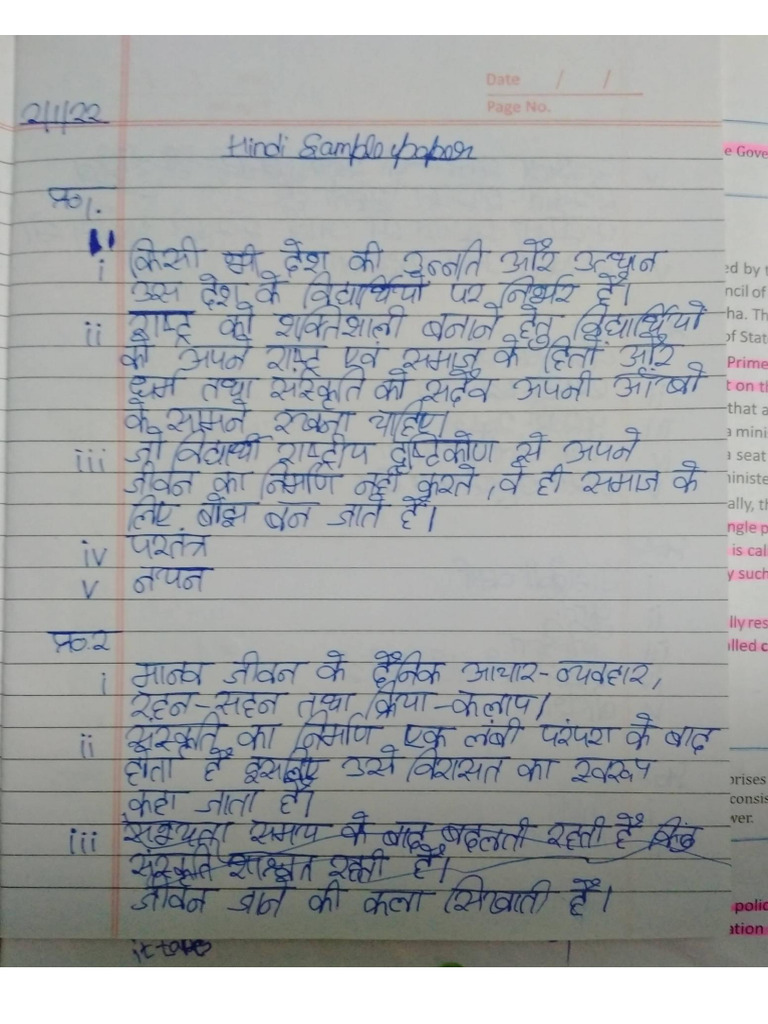 Date / /
Page No.
2/1/22
Hindi Sample paper
प्र०1.
i किसी भी देश की उन्नति और उत्थान
उस देश के विद्यार्थियों पर निर्भर है।
ii राष्ट्र को शक्तिशाली बनाने हेतु विद्यार्थियों
को अपने राष्ट्र एवं समाज के हितों और
धर्म तथा संस्कृति को सदैव अपनी आँखों
के सामने रखना चाहिए।
iii जो विद्यार्थी राष्ट्रीय दृष्टिकोण से अपने
जीवन का निर्माण नहीं करते, वे ही समाज के
लिए बोझ बन जाते हैं।
iv परतंत्र
v नयन
प्र०.२
i मानव जीवन के दैनिक आचार-व्यवहार,
रहन-सहन तथा क्रिया-कलाप।
ii संस्कृति का निर्माण एक लंबी परंपरा के बाद
होता है इसलिए उसे विरासत का स्वरूप
कहा जाता है।
iii सभ्यता समय के बाद बदलती रहती है किंतु
संस्कृति शाश्वत रहती है।
जीवन जीने की कला सिखाती है।
e Gove
ed by t
ncil of
ha. Th
of Stat
Prime
t on th
that a
a mini
a seat
iniste
ally, th
ngle p
is cal
y such
lly res
lled c
prises
consis
wer.
polic
ation